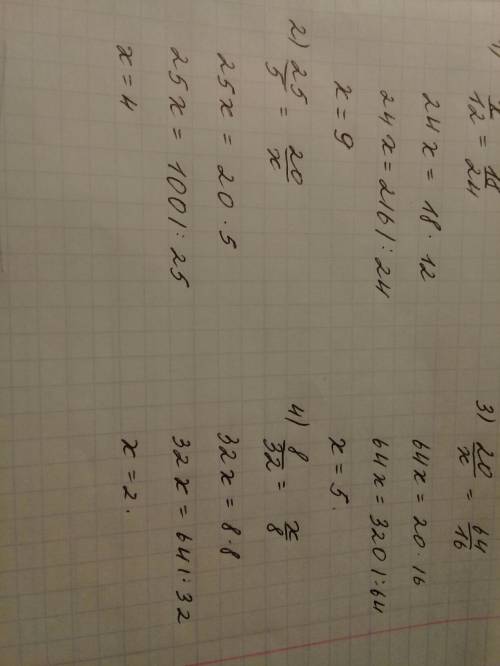 1) x/12 = 18/24
24x = 18 · 12
24x = 216 | : 24
x = 9
2) 25/5 = 20/x
25x = 20 · 5
25x = 100 | : 25
x = 4
3) 20/x = 64/16
64x = 20 · 16
64x = 320 | : 64
x = 5.
4) 8/32 = x/8
32x = 8 · 8
32x = 64 | : 32
x = 2.